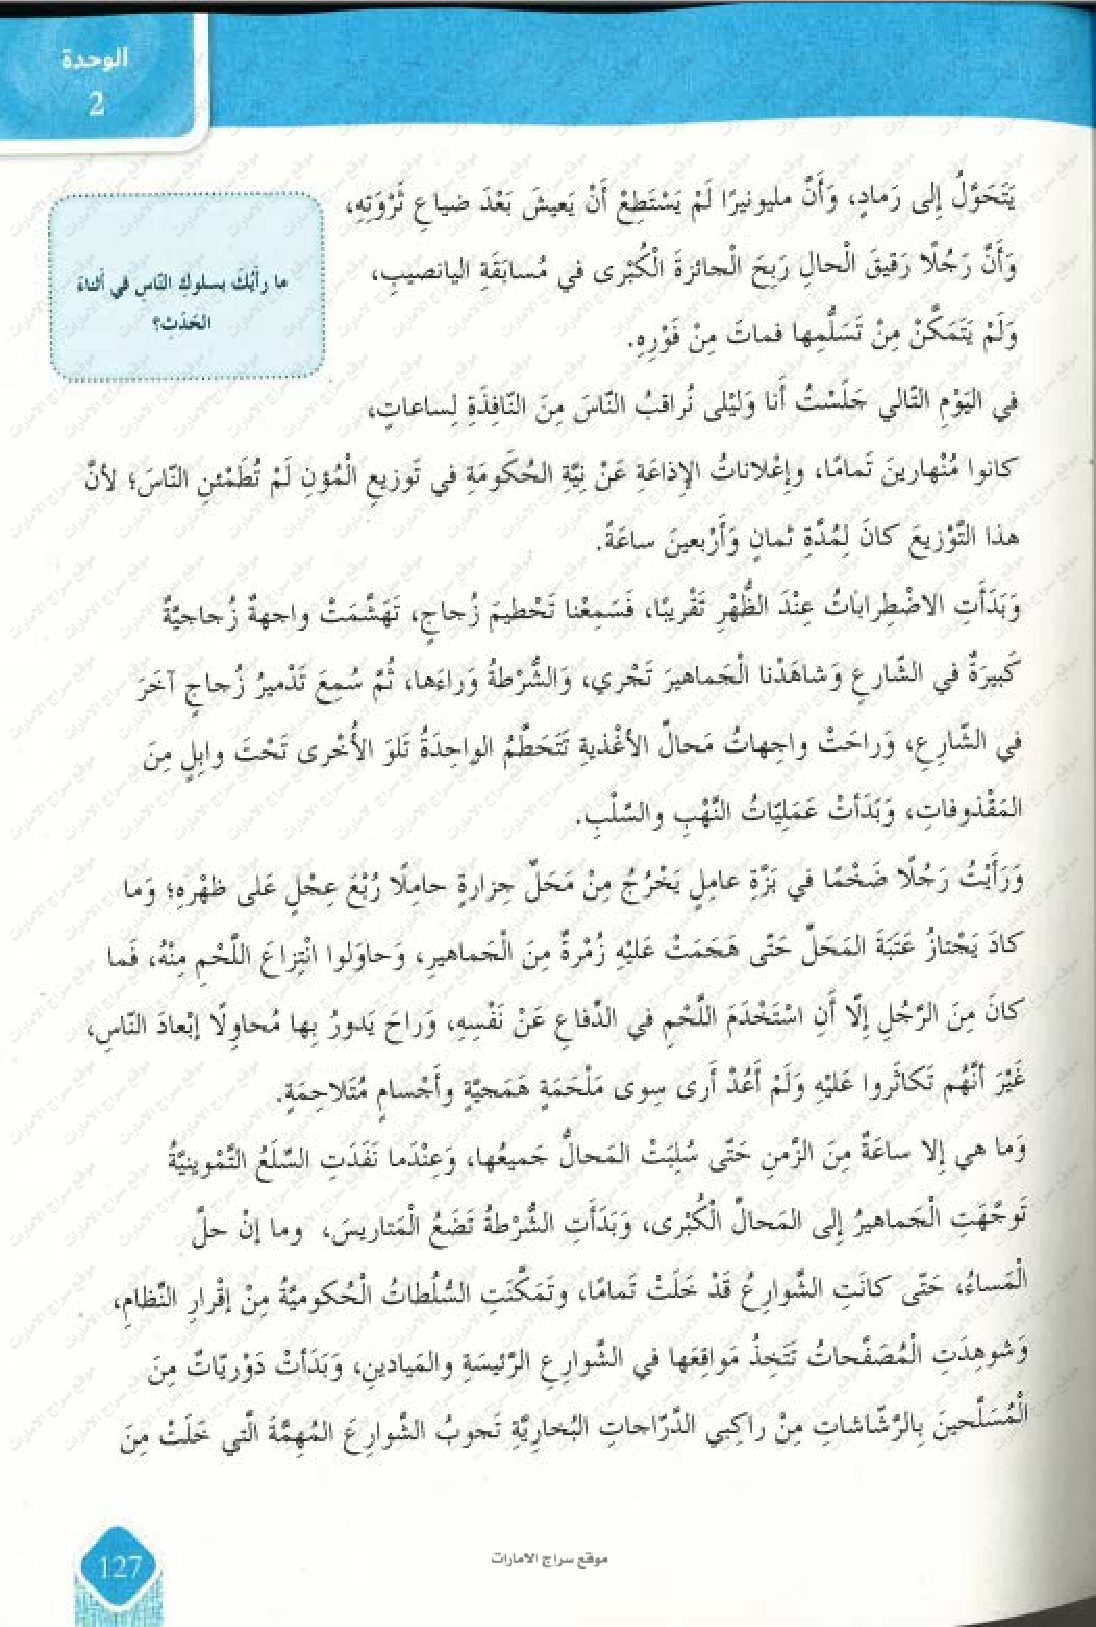 الوحدة
2
يَتَحَوَّلُ إِلى رَمادٍ، وَأَنَّ مليونيرًا لَمْ يَسْتَطِعْ أَنْ يَعيشَ بَعْدَ ضياعِ ثَرْوَتِهِ،
وَأَنَّ رَجُلًا رَقيقَ الْحالِ رَبِحَ الْجائزةَ الْكُبْرى في مُسابَقَةِ اليانصيبِ،
وَلَمْ يَتَمَكَّنْ مِنْ تَسَلُّمِها فماتَ مِنْ فَوْرِهِ.
ما رأْيُكَ بسلوكِ النّاسِ في أثناءِ
الحَدَثِ؟
في اليَوْمِ التّالي جَلَسْتُ أَنا وَليْلى نُراقبُ النّاسَ مِنَ النّافِذَةِ لِساعاتٍ،
كانوا مُنْهارينَ تَمامًا، وإِعْلاناتُ الإِذاعَةِ عَنْ نِيَّةِ الحُكَومَةِ في تَوزيعِ الْمُؤنِ لَمْ تُطَمْئنِ النّاسَ؛ لأنَّ
هذا التَّوْزيعَ كانَ لِمُدَّةِ ثمانٍ وَأَرْبعينَ ساعَةً.
وَبَدَأَتِ الاضْطِراباتُ عِنْدَ الظُّهْرِ تَقْريبًا، فَسَمِعْنا تَحْطيمَ زُجاجٍ، تَهَشَّمَتْ واجهةٌ زُجاجيَّةٌ
كَبيرَةٌ في الشّارعِ وَشاهَدْنا الْجَماهيرَ تَجْري، وَالشُّرْطةُ وَراءَها، ثُمَّ سُمِعَ تَدْميرُ زُجاجٍ آخَرَ
في الشّارِعِ، وَراحَتْ واجِهاتُ مَحالِّ الأغْذيةِ تَتَحَطَّمُ الواحِدَةُ تَلوَ الأُخْرى تَحْتَ وابِلٍ مِنَ
المَقْذوفاتِ، وَبَدَأتْ عَمَلِيّاتُ النَّهْبِ والسَّلْبِ.
وَرَأَيْتُ رَجُلًا ضَخْمًا في بَزَّةِ عامِلٍ يَخْرُجُ مِنْ مَحَلِّ جِزارةٍ حامِلًا رُبْعَ عِجْلٍ عَلى ظهْرِهِ؛ وَما
كادَ يَجْتازُ عَتَبَةَ المَحَلِّ حَتّى هَجَمَتْ عَليْهِ زُمْرةٌ مِنَ الْجَماهيرِ، وَحاوَلوا انْتِزاعَ اللَّحْمِ مِنْهُ، فَما
كانَ مِنَ الرَّجُلِ إلّا أَنِ اسْتَخْدَمَ اللَّحْمِ في الدِّفاعِ عَنْ نَفْسِهِ، وَراحَ يَدورُ بِها مُحاوِلًا إبْعادَ النّاسِ،
غَيْرَ أنَّهُم تَكاثَروا عَليْهِ وَلَمْ أَعُدْ أَرى سِوى مَلْحَمَةٍ هَمَجيَّةٍ وأَجْسامٍ مُتَلاحِمَةٍ.
وَما هي إِلا ساعَةٌ مِنَ الزَّمنِ حَتّى سُلِبَتْ المَحالُّ جَميعُها، وَعِنْدَما نَفَدَتِ السِّلَعُ التَّمْوينيَّةُ
تَوجَّهَتِ الْجَماهيرُ إِلى المَحالِّ الْكُبْرى، وَبَدَأَتِ الشُّرْطةُ تَضَعُ الْمَتاريسَ، وما إنْ حلَّ
الْمَساءُ، حَتّى كانَتِ الشَّوارِعُ قَدْ خَلَتْ تَمامًا، وتَمَكَّنَتِ السُّلُطاتُ الْحُكوميَّةُ مِنْ إقْرارِ النِّظامِ،
وَشوهِدَتِ الْمُصَفَّحاتُ تَتَخِذُ مَواقِعَها في الشَّوارِعِ الرَّئيسَةِ والمَيادينِ، وَبَدَأتْ دَوْريّاتٌ مِنَ
الْمُسَلَّحينَ بِالرَّشّاشاتِ مِنْ راكِبي الدَّرّاجاتِ البُخاريَّةِ تَجوبُ الشَّوارِعَ المُهِمَّةَ الَّتي خَلَتْ مِنَ
موقع سراج الامارات
127